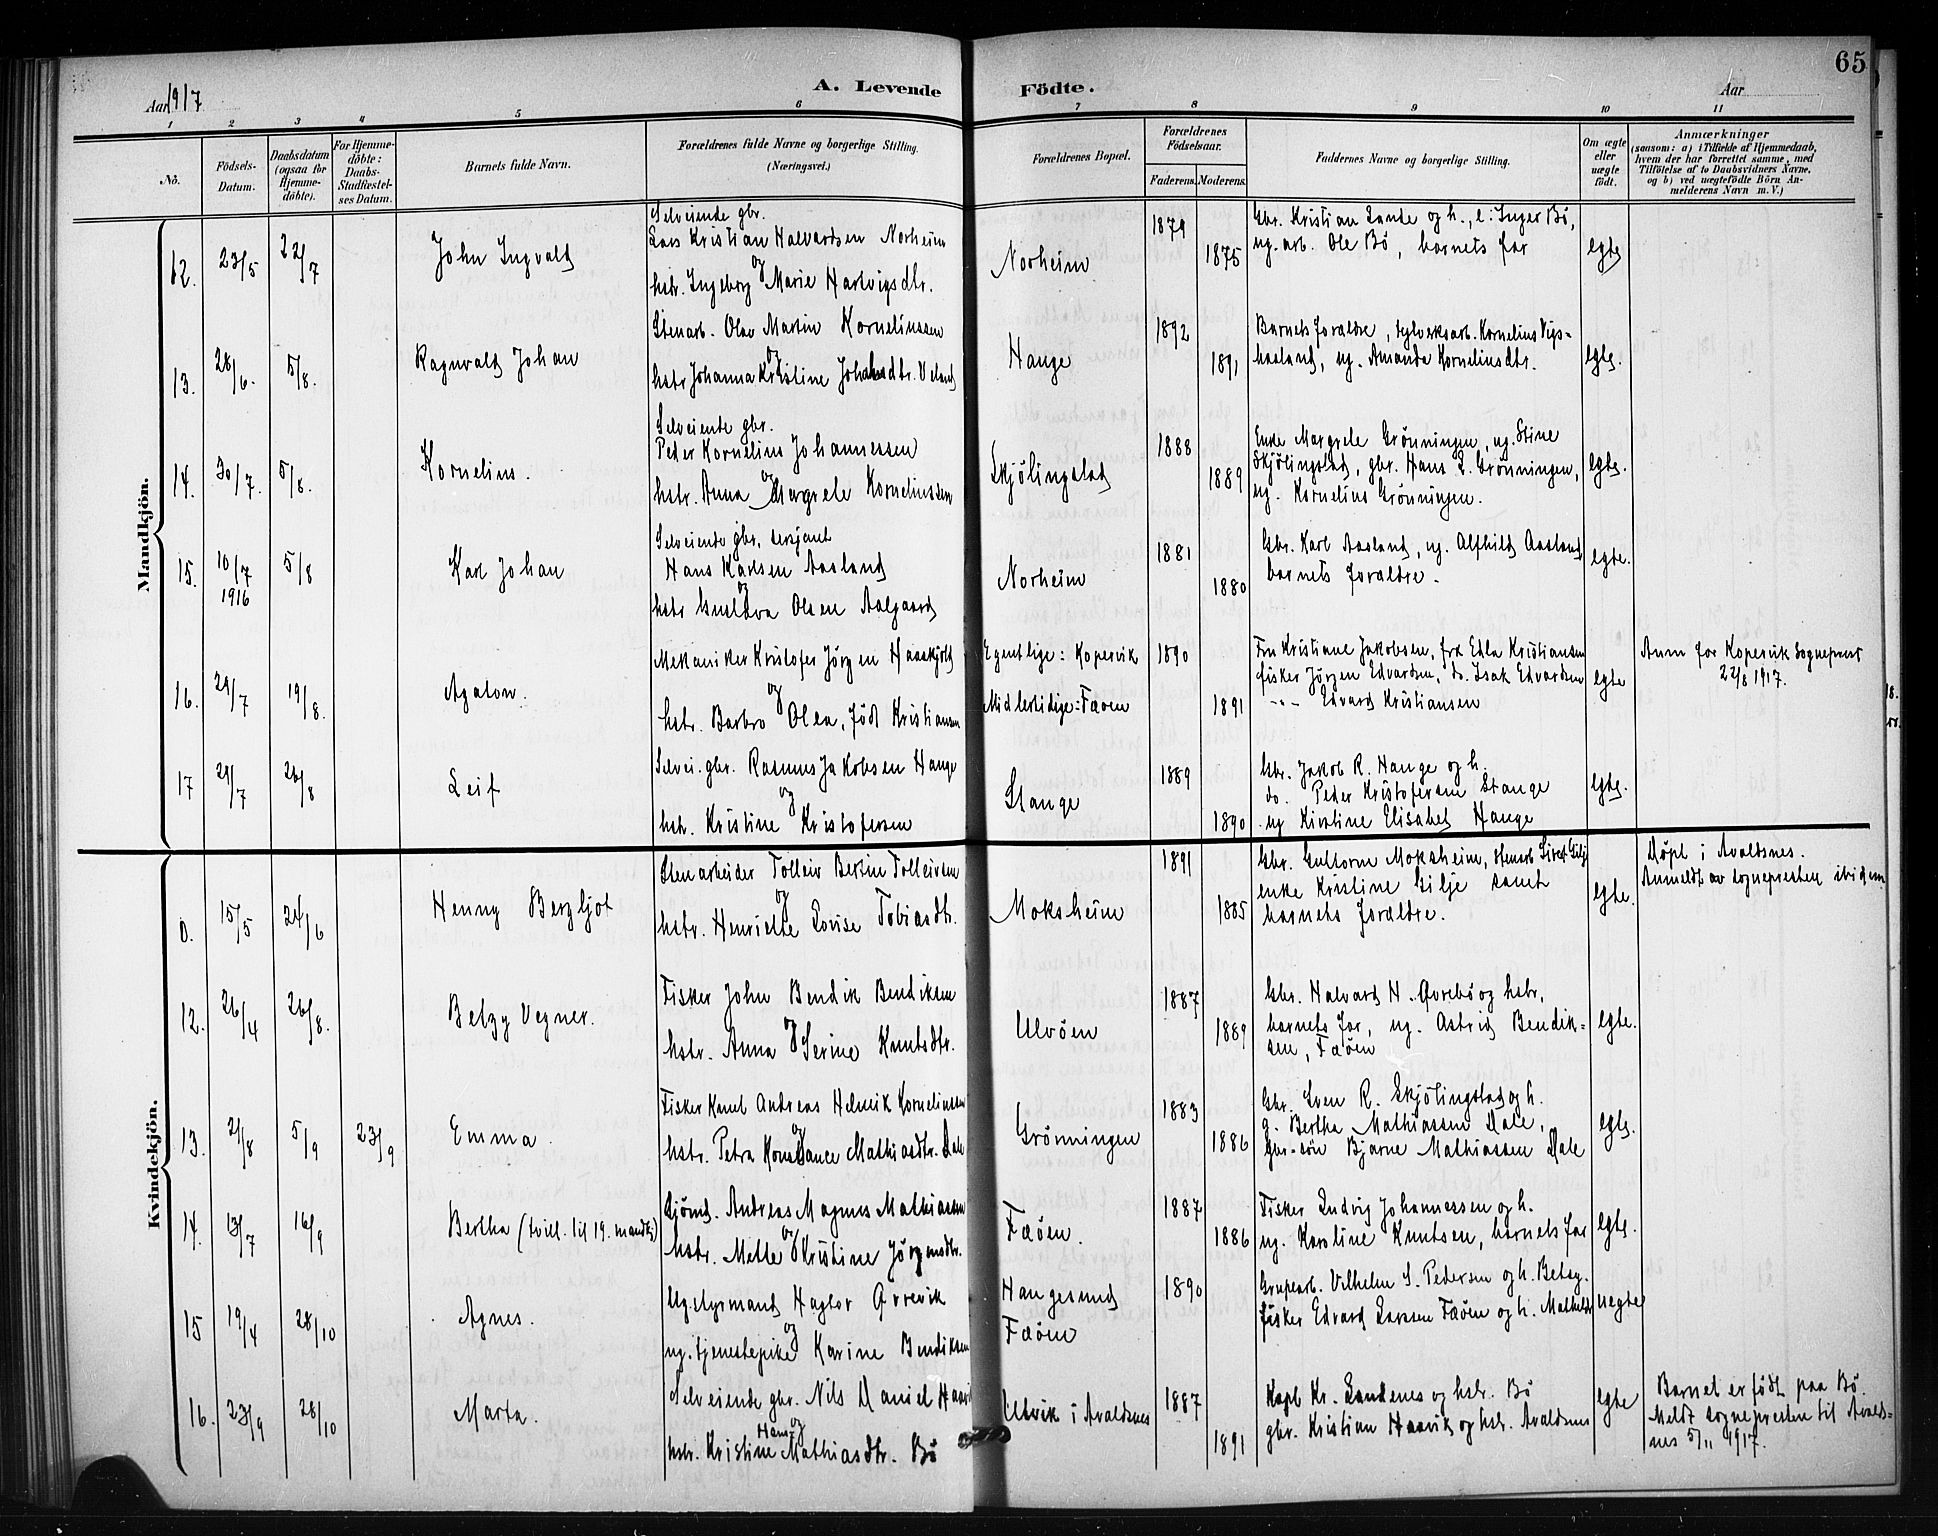 65
Aar 1917
A. Levende Födte.
Aar
1 2 3 4 5 6 7 8 9 10 11
No.
Födsels-Datum.
Daabsdatum (ogsaa for Hjemme-döbte).
For Hjemme-döbte: Daabs-Stadfæstel-ses Datum.
Barnets fulde Navn.
Forældrenes fulde Navne og borgerlige Stilling.
(Næringsvei.)
Forældrenes Bopæl.
Forældrenes Födselsaar.
Faderens. Moderens.
Faddernes Navne og borgerlige Stilling.
Om ægte eller uægte födt.
Anmærkninger
(saasom: a) i Tilfælde af Hjemmedaab,
hvem der har forrettet samme, med
Tilföielse af to Daabsvidners Navne,
og b) ved uægtefödte Börn An-
melderens Navn m. V.)
Mandkjön.
12. 23/5 22/7 John Ingvald
Selveiende gbr.
Lars Kristian Halvardsen Norheim
og
hstr. Ingeborg Marie Hartvigsdtr.
Norheim 1879 1875
Gbr. Kristian Lande og h., e: Inger Bö,
ug. arb. Ole Bö, barnets far
egte
13. 28/6. 5/8. Ragnvald Johan
Stenarb. Olav Martin Korneliussen
og
hstr Johanna Kristine Johansdtr.
Hauge 1892 1891
Barnets foraldre, teglverksarb. Kornelius Vips-
haaland, ug. Amanda Korneliusdtr.
egte.
14. 30/7. 5/8. Kornelius.
Selveiende gbr.
Peder Kornelius Johannessen
og
hstr. Anna Margrete Korneliussen
Skjölingstad 1888 1889
Enke Margrete Grönningen, ug. Stine
Skjölingstad, gbr. Hans L. Grönningen,
ug. Kornelius Grönningen.
egte.
15. 10/7 1916 5/8 Karl Johan
Selveiende gbr, sersjant
Hans Karlsen Aasland
og
hstr Gustava Olsen Aalgaard
Norheim 1881 1880
Gbr. Karl Aasland, ug. Alfhild Aasland
barnets foraldre.
egte.
16. 29/7 19/8. Agalon.
Mekaniker Kristofer Jörgen Haaskjold
og
hstr. Barbro Olea, född Kristiansen
Egentlige: Kopervik
Midlertidige: Fæöen
1890 1891
Fru Kristiane Jakobsen, frk Edla Kristiansen
fisker Jörgen Edvardsen, do. Isak Edvardsen
-"- Edvard Kristiansen
egte
Anm for Kopervik sogneprest
22/8 1917.
17 29/7 26/8 Leif
Selvei. gbr. Rasmus Jakobsen Hauge
og
hstr. Kristine Kristofersen
Stange 1889 1890
Gbr. Jakob R. Hauge og h.
do. Peder Kristofersen Stange
ug Kirstine Elisabet Hauge
egte.
Kvindekjön.
0. 15/5 24/6 Henny Bergljot
Stenarbeider Tolleiv Bertin Tolleivsen
og
hstr. Henriette Lovise Tobiasdtr.
Moksheim 1891 1885
Gbr. Guttorm Moksheim, stenarb Sivert Gilje
enke Kristine Gilje samt
barnets foraldre.
egte.
Döpt i Avaldsnes.
Anmeldt av sognepresten ibidem
12. 26/4 26/8. Betzy Vegner.
Fisker John Bendik Bendiksen
og
hstr. Anna Serine Knutsdtr.
Ulvöen 1887 1889
Gbr. Halvard H. Øvrebö og hstr,
barnets far, ug. Astrid Bendik-
sen, Fæöen
egte.
13. 21/8 5/9 23/9 Emma.
Fisker Knut Andreas Helmik Korneliussen
og
hstr. Petra Konstance Mathiasdtr. Dale
Grönningen 1883 1886
Gbr. Sven R. Skjölingstad og h.
g. Bertha Mathiassen Dale,
Gbr-sön Bjarne Mathiassen Dale
egte.
14. 13/7 16/9 Bertha (tvill. til 19. mandkj)
Sjömd. Andreas Magnus Mathiassen
og
hstr. Mette Kristine Jörgensdtr.
Fæöen. 1887 1886
Fisker Ludvig Johannessen og h.
ug. Karoline Knutsen, barnets far
egte.
15 19/4 28/10 Agnes.
Ug. styrmand Hagtor Ørrevik
og
ug. tjenestepike Karine Bendiksen
Haugesund
Fæöen
1890
Grupearb. Vilhelm S. Pedersen og h. Betsy.
fisker Edvard Larssen Fæöen og h. Mathilde
uegte
16. 23/9 28/10 Marta.
Selveiende gbr. Nils Daniel Haavik
og
hstr. Kristine Hansine Mathiasdtr. Bö
Utvik i Avaldsnes 1887 1891
Kapt Kr. Sandenes og hstr. Bö
gbr. Kristian Haavik og hstr. Avaldsnes
egte
Barnet er födt paa Bö.
Meldt sognepresten til Avalds-
nes 5/11 1917.